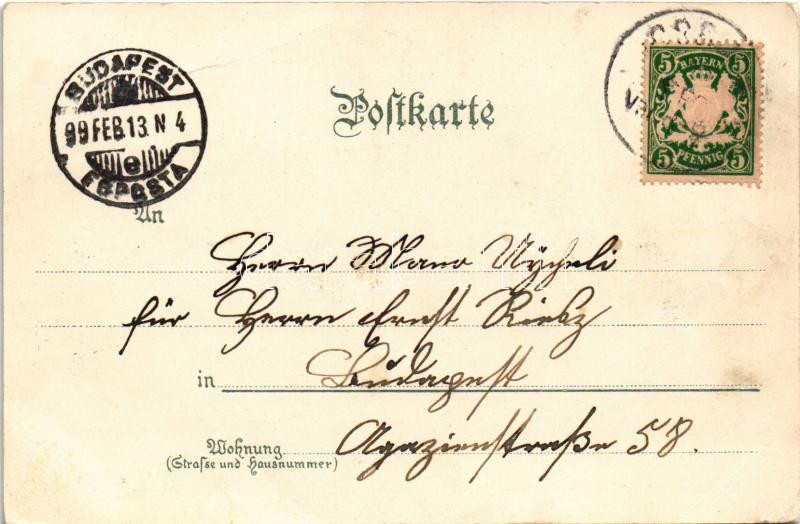 BUDAPEST
99 FEB. 13. N 4
e
FŐPOSTA
Postkarte
5 BAYERN 5
5 PFENNIG 5
An
Herrn Mano
für Herrn Ernst
in Budapest
Wohnung
(Strasse und Hausnummer)
Agazienstraße 58.